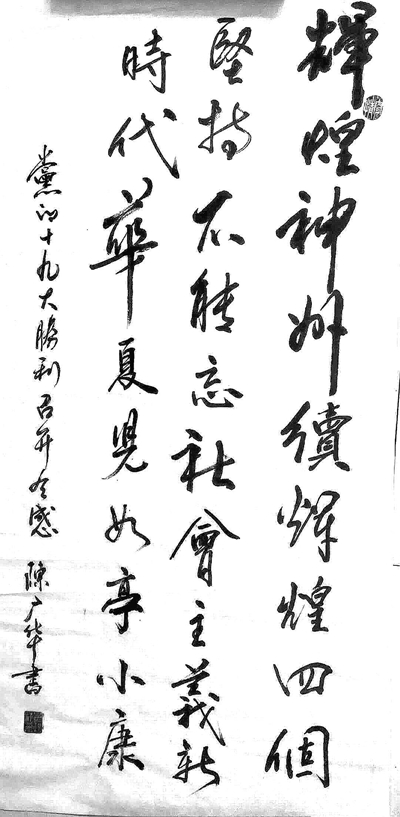 輝煌神州續煇煌四個
堅持不能忘社會主義新
時代華夏兒女享小康
黨的十九大勝利召开有感 陳广华書